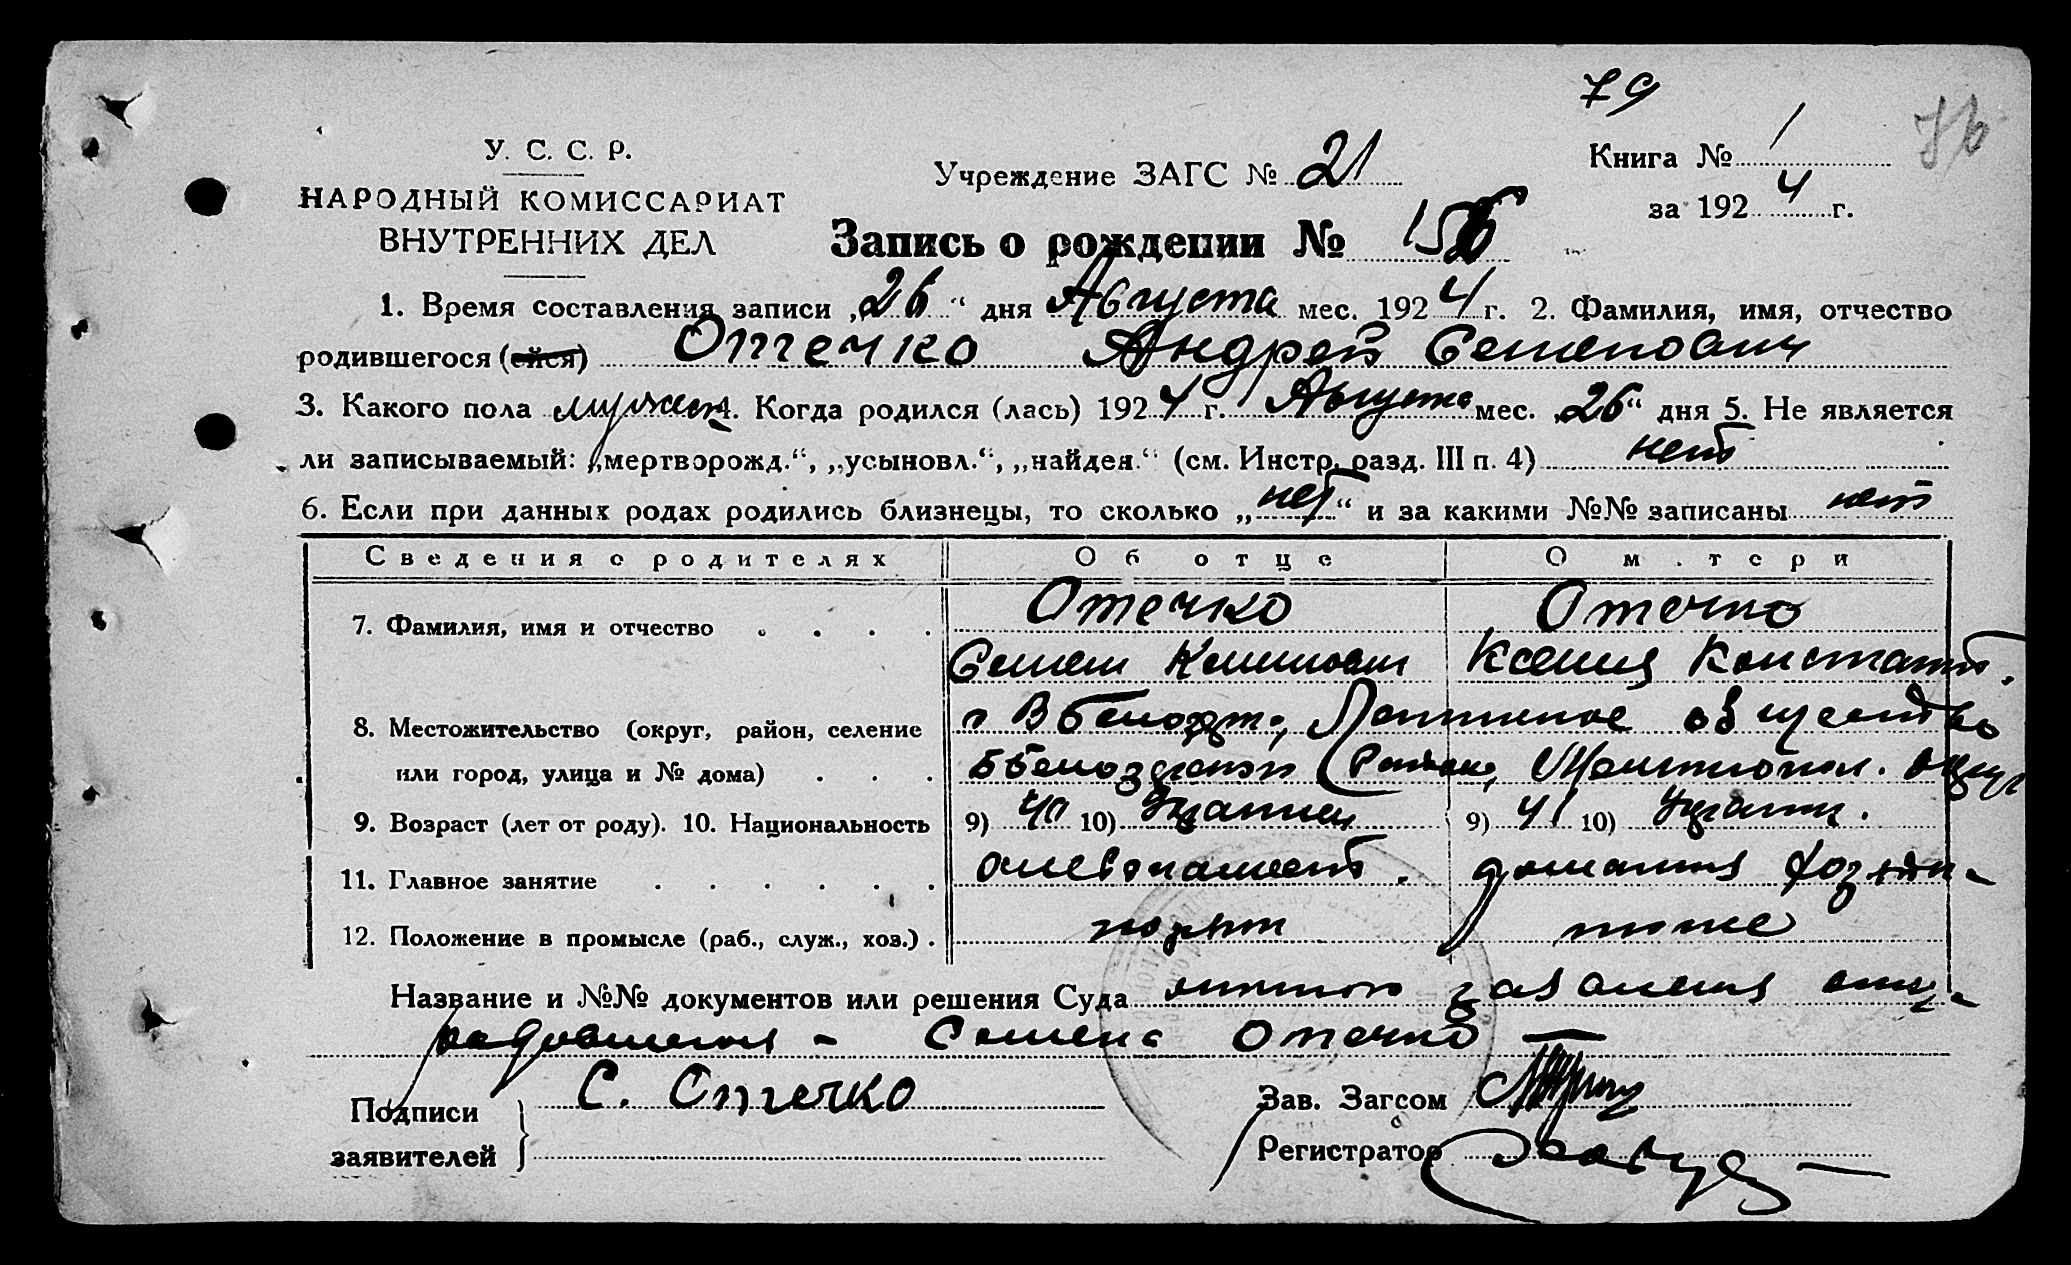 79
76
У. С. С. Р.
НАРОДНЫЙ КОМИССАРИАТ
ВНУТРЕННИХ ДЕЛ
Учреждение ЗАГС № 21
Книга № 1
за 1924 г.
Запись о рождении № 156
1. Время составления записи „26“ дня Августа мес. 1924 г. 2. Фамилия, имя, отчество
родившегося (ейся) Отечко Андрей Семенович
3. Какого пола мужск 4. Когда родился (лась) 1924 г. Августа мес. „26“ дня 5. Не является
ли записываемый: „мертворожд.“, „усыновл.“, „найден.“ (см. Инстр. разд. III п. 4) нет
6. Если при данных родах родились близнецы, то сколько „нет“ и за какими №№ записаны нет
Сведения о родителях Об отце О м.тери
7. Фамилия, имя и отчество Отечко Отечко
Семен Ксения Констант.
8. Местожительство (округ, район, селение общество
или город, улица и № дома)
9. Возраст (лет от роду). 10. Национальность 9) 40 10) Украинец 9) 41 10) Украин.
11. Главное занятие домашняя хозяй-
12. Положение в промысле (раб., служ., хоз.) тоже
Название и №№ документов или решения Суда
Семена Отечко
Подписи
заявителей
С. Отечко
Зав. Загсом
Регистратор